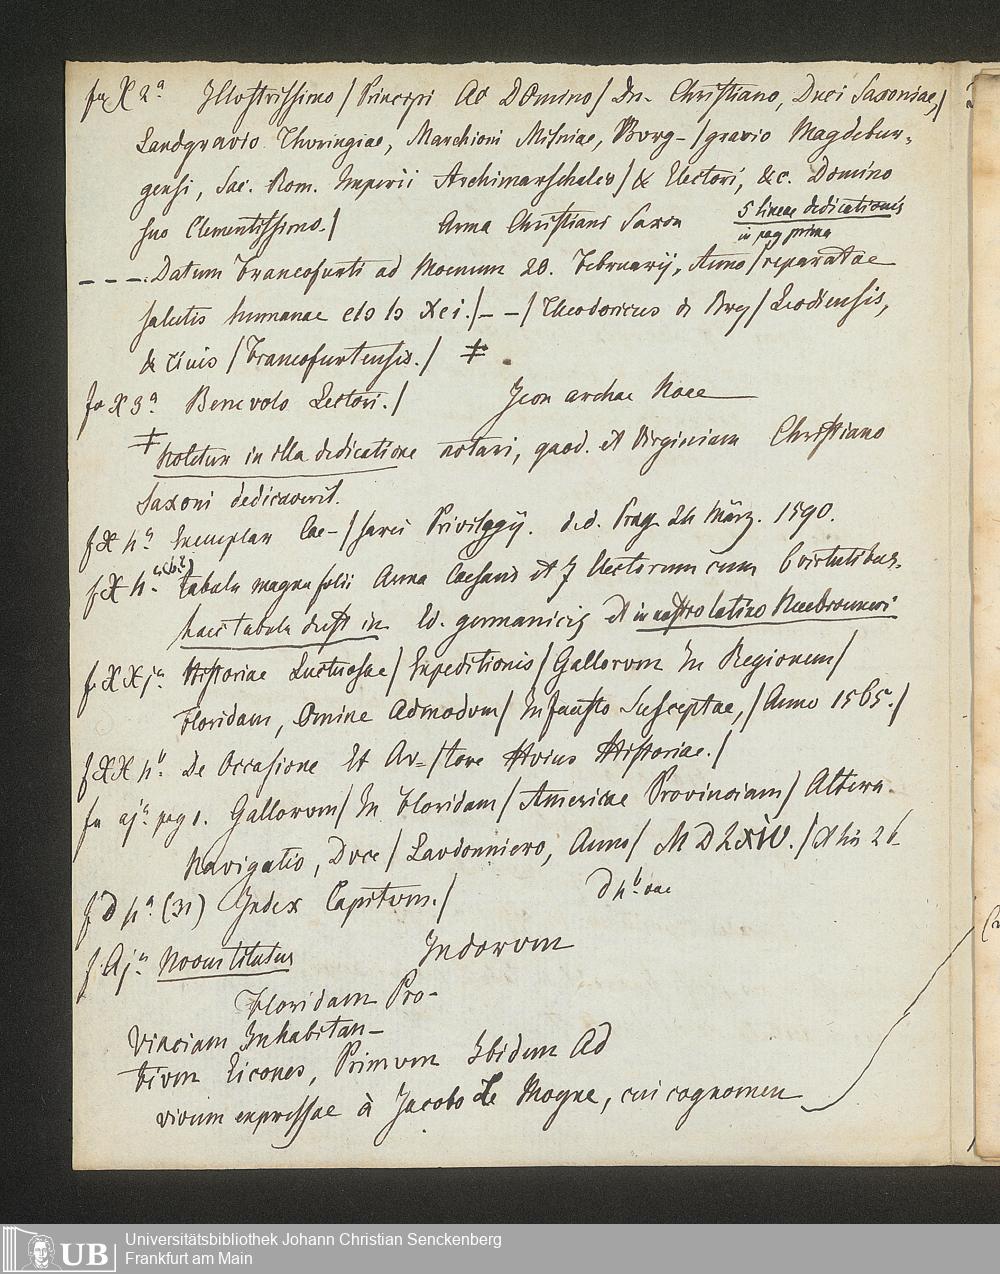 fu X 2a Illostrissimo / Principi Ac Domino / Dn. Christiano, Duci Saxoniae, /
Landgravio Thuringiae, Marchioni Misniae, Burg- / gravio Magdebur-
gensi, Sac. Rom. Imperii Archimarschaleo / & Electori, &c. Domino
suo Clementissimo. / Arma Christiani Saxon 5 lineae dedicationis
in pag prima
– – –. Datum Francofurti ad Moenum 20. Februarij, Anno / reparatae
salutis humanae / – – / Theodoricus de Bry / Leodiensis,
& civis / Francofurtensis. / ‡
fo X 3a Benevolo Lectori. / Icon archae Noae
‡ Notetur in illa dedicatione notari, quod et Virginiam Christiano
Saxoni dedicaverit.
f X 4a Exemplar Cae- / sarei Privileggij. d.d. Prag 24 März. 1590.
f X 4a (bis) tabula magna folii Arma Caesaris et 7 Electorum cum 6 virtutibus.
haec tabula deest in Ed. germanicis et in nostro latino
f X X ja Historiae Luctuosae / Expeditionis / Gallorvm In Regionem /
Floridam, Omine Admodvm / Infausto Susceptae, / Anno 1565. /
f X X 4b. De Occasione Et Av- / tore Hvius Historiae. /
fu aja pag 1. Gallorvm / In Floridam / Americae Provinciam / Altera
Navigatio, Dvce / Lavdonniero, Anno / M D LXIV. /
f D 4a (31) Index Capitvm. / D 4b vac
f. Aja Novus titulus Indorvm
Floridam Pro-
vinciam Inhabitan-
tivm Eicones, Primvm Ibidem Ad
vivum expressae à Jacobo Le Moyne, cui cognomen
UB Universitätsbibliothek Johann Christian Senckenberg
Frankfurt am Main